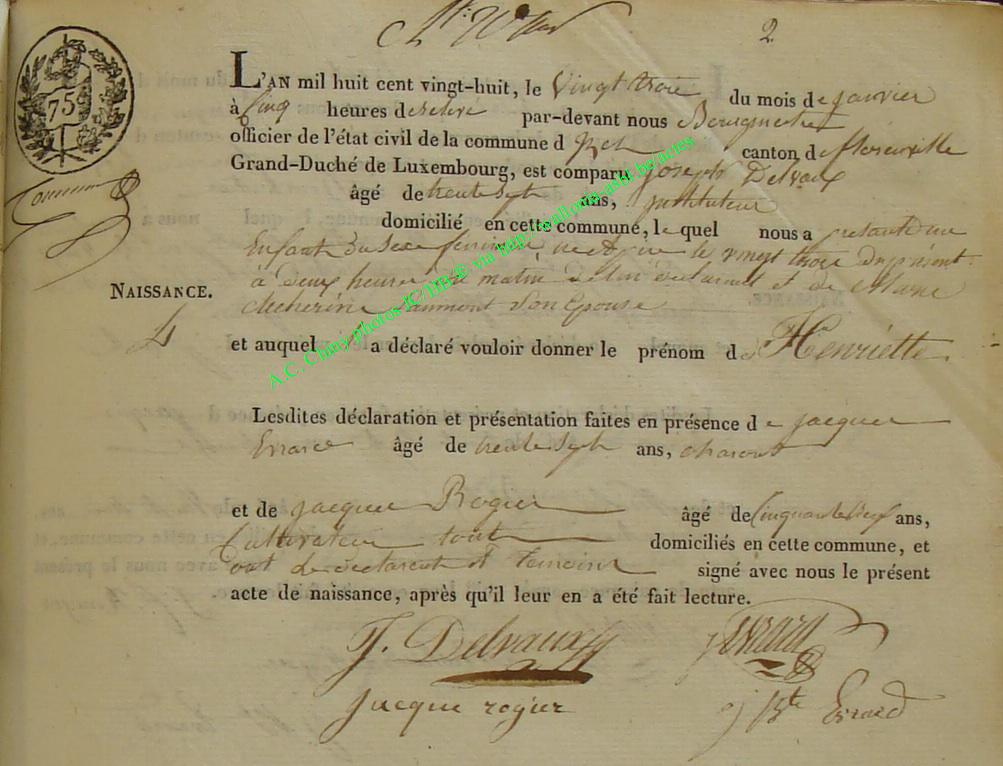 2
75
L'AN mil huit cent vingt-huit, le vingt trois du mois de janvier
à cinq heures de relevé par-devant nous Bourgmestre
officier de l'état civil de la commune d'Izel canton de florenville
Grand-Duché de Luxembourg, est comparu joseph Delvaux
âgé de trente sept ans, instituteur
domicilié en cette commune, lequel nous a présenté une
Enfant du sexe feminin, née le vingt trois du present
à deux heures du matin de lui declarant et de Marie
Catherine son Epouse
NAISSANCE.
4
et auquel il a déclaré vouloir donner le prénom de Henriette
Lesdites déclaration et présentation faites en présence de jacques
Errard âgé de trente sept ans, charron
et de jacque Rogier âgé de cinquante neuf ans,
Cultivateur tout domiciliés en cette commune, et
ont declarant et temoins signé avec nous le présent
acte de naissance, après qu'il leur en a été fait lecture.
J. Delvaux j errard
jacque rogier j Bte Errard
A.C. Chiny photos IC/DB© via http://wallonia-asbl.be/actes